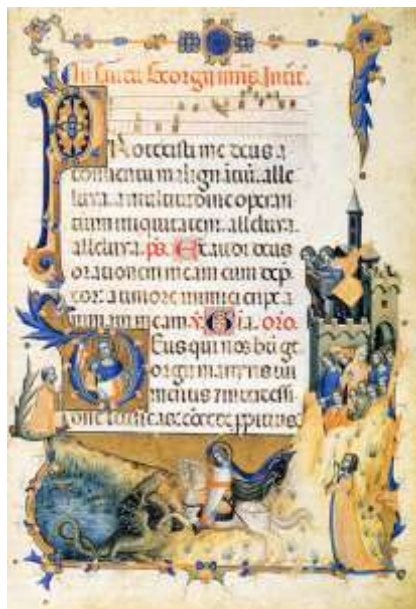 In sancti Georgii mris. Introit.
PRotexisti me deus a
conventu malignātiū. alle
luya. a multitudine operan
tium iniquitatem. alleluya.
alleluya. ps. Exaudi deus
orationem meam cum dep
cor: a timore inimici eripe a
nimam meam. V. Gl̄a. oro.
Deus qui nos bti ge
orgii martiris tui
meritis et intercessi
one letificas: concede ppitius.